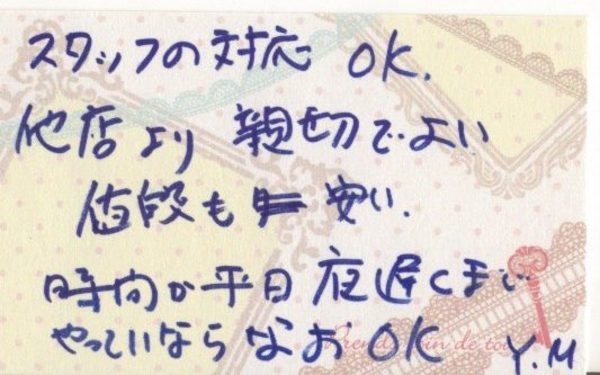 スタッフの対応 OK.
他店より 親切でよい
値段も 安い.
時間が平日 夜遅くまで
やっていたらなお OK
Y.M